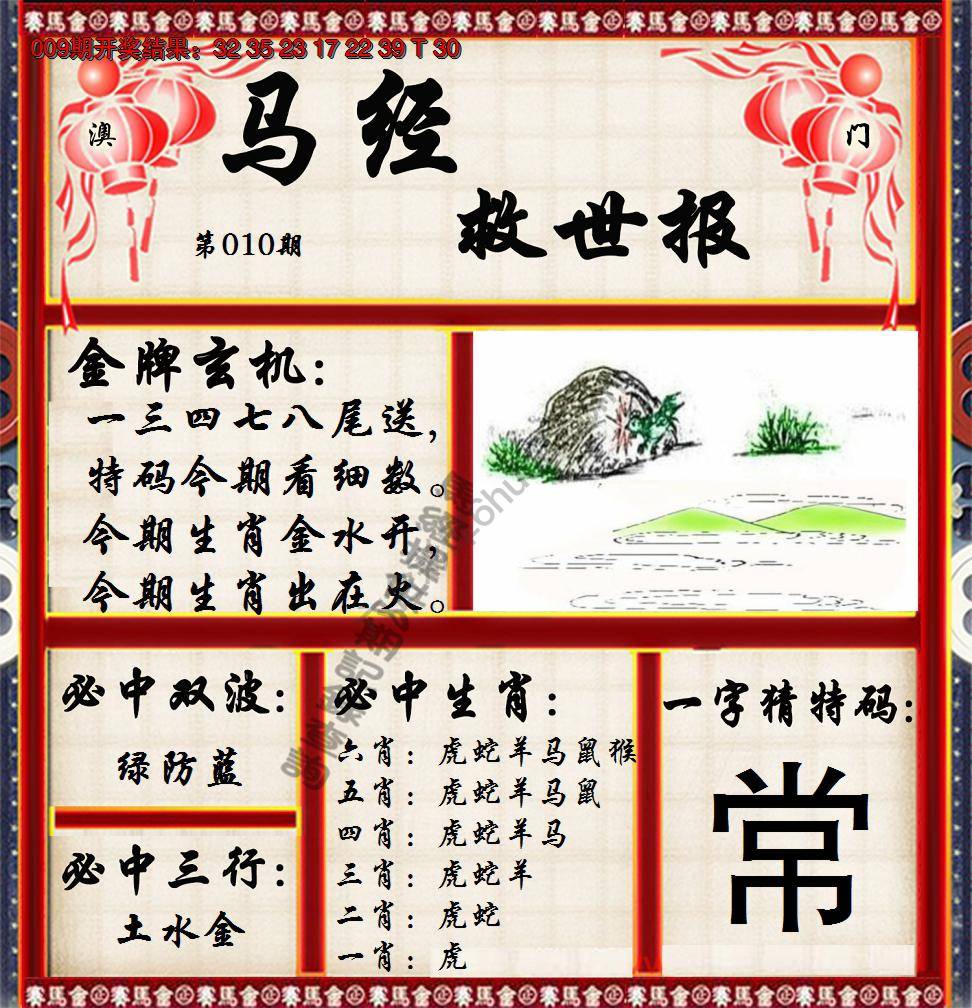 赛馬會
009期开奖结果：32 35 23 17 22 39 T 30
澳
门
马经
救世报
第010期
金牌玄机：
一三四七八尾送，
特码今期看细数。
今期生肖金水开，
今期生肖出在火。
必中双波：
绿防蓝
必中三行：
土水金
必中生肖：
六肖：虎蛇羊马鼠猴
五肖：虎蛇羊马鼠
四肖：虎蛇羊马
三肖：虎蛇羊
二肖：虎蛇
一肖：虎
一字猜特码：
常